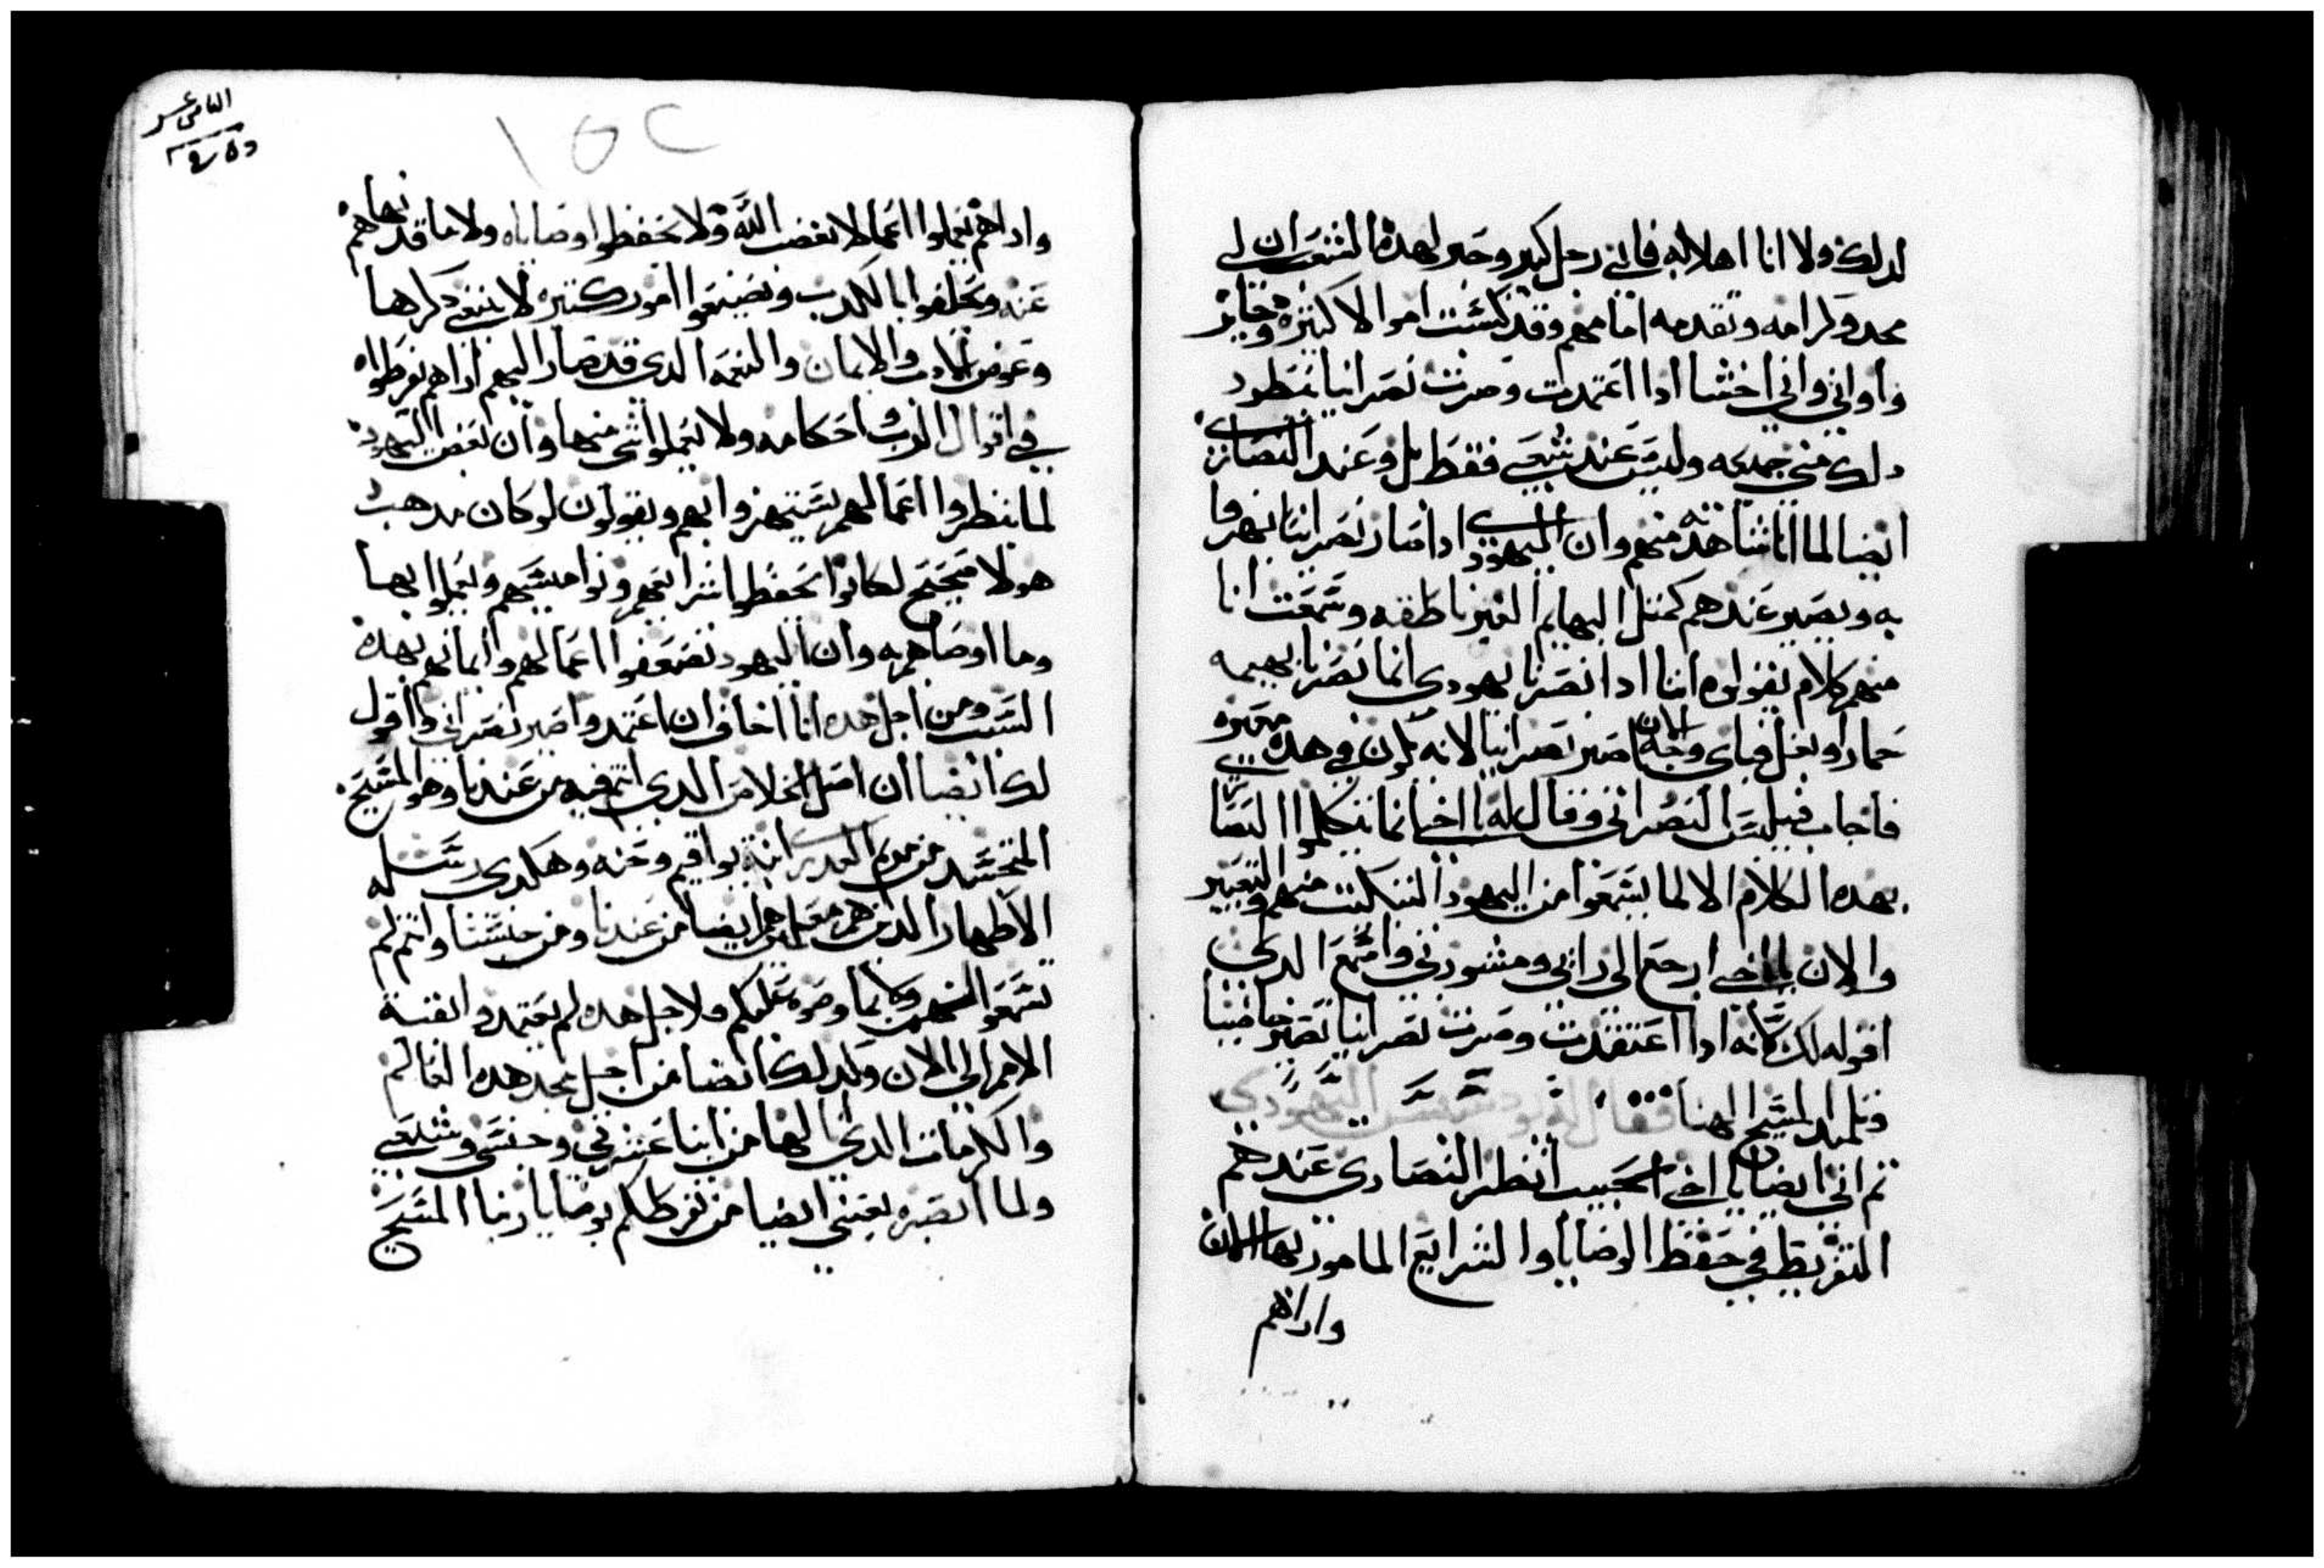 لدلك ولا انا اهلا له فاني رجل كبير وحبر لهده الشعب ان لي
مجد وكرامه وتقدمه امامهم وقد كسبت اموالا كتيره ودخاير
واواني واني اخشا ادا اعتمدت وصرت نصرانيا تبطرد
دلك مني جميعه وليس عند شعبي فقط بل وعند النصارى
ايضا لما انا شاهدته منهم وان اليهودي ادا صار نصرانيا يهزوا
به ويصير عندهم كمتل البهايم الغير ناطقه وسمعت انا
منهم كلام يقولوه اننا ادا نصرنا يهودي انما نصرنا بهيمه
حمار او بغل فباى وجه الان اصير نصرانيا لانه تكون في هده معيره
فاجاب فيلبس النصراني وقال له يا اخي انما يتكلموا النصارى
بهده الكلام الا لما يسمعوا من اليهود التنكيت منهم والتعيير
والان يا اخي ارجع الى رايي ومشورتي واسمع الدي
اقوله لك لانه ادا اعتقدت وصرت نصرانيا تصير حبيبا
وتلميد المسيح الهنا فقال له اليهودي
تم اني ايضا يا اخي الحبيب انظر النصارى عندهم
التفريط في حفظ الوصايا والشرايع المامور بها
واداهم
التامن عشر
١٥٢
واداهم يعملوا اعمالا تغضب الله ولا يحفظوا وصاياه ولا ما قد نهاهم
عنه ويحلفوا بالكدب ويضيعوا امور كتيره لا ينبغي دكرها
وعوض والايمان والنعمه الدي قد صار اليهم اداهم يفرطواه
في اقوال الرب واحكامه ولا يعملوا شي منها وان بعض اليهود
لما ينظروا اعمالهم يستهزوا بهم ويقولون لو كان مدهب
هولا صحيح لكانوا يحفظوا شرايعهم ونواميسهم ويعملوا بها
وما اوصاهم به وان اليهود تضعفوا اعمالهم وايمانهم بهده
السبب ومن اجل هده انا اخاف ان اعتمد واصير نصراني واقول
لك ايضا ان اصل الخلاص الدي انتم فيه من عندنا وهو المسيح
المتجسد من مريم العدرى ابنة يواقيم وحنه وهكدى رسله
الاطهار الدين هم معلمين هم ايضا من عندنا ومن جنسنا وانتم لم
تسمعوا منهم وكما وصوه عليكم ولاجل هده لم يعتمدوا بقية
الامم الى الان ولدلك ايضا من اجل مجد هده العالم
والكرمات الدي الها من ابنا عشيرتي وجنسي وشعبي
ولما ابصره بعيني ايضا من تفرطكم بوصايا ربنا المسيح